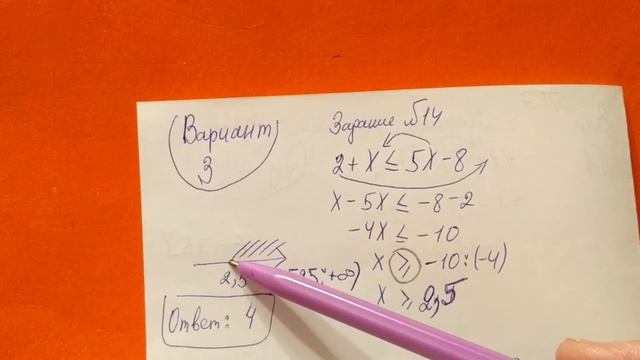 Вариант
3
Задание №14
2 + x ≤ 5x - 8
x - 5x ≤ -8 - 2
-4x ≤ -10
x ≥ -10 : (-4)
x ≥ 2,5
2,5
+∞)
Ответ: 4